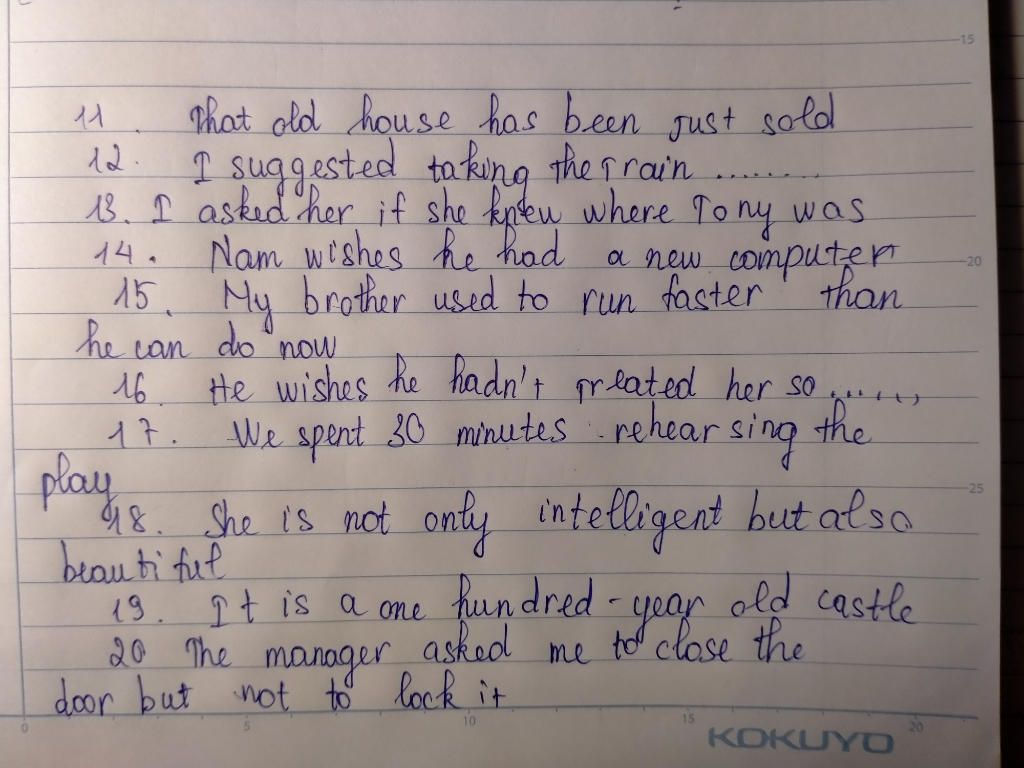 15
11. That old house has been just sold
12. I suggested taking the train ........
13. I asked her if she knew where Tony was
14. Nam wishes he had a new computer
20
15. My brother used to run faster than
he can do now
16. He wishes he hadn't treated her so ......
17. We spent 30 minutes rehearsing the
play
25
18. She is not only intelligent but also
beautiful
19. It is a one hundred-year old castle
20 The manager asked me to close the
door but not to lock it
0 5 10 15 20
KOKUYO